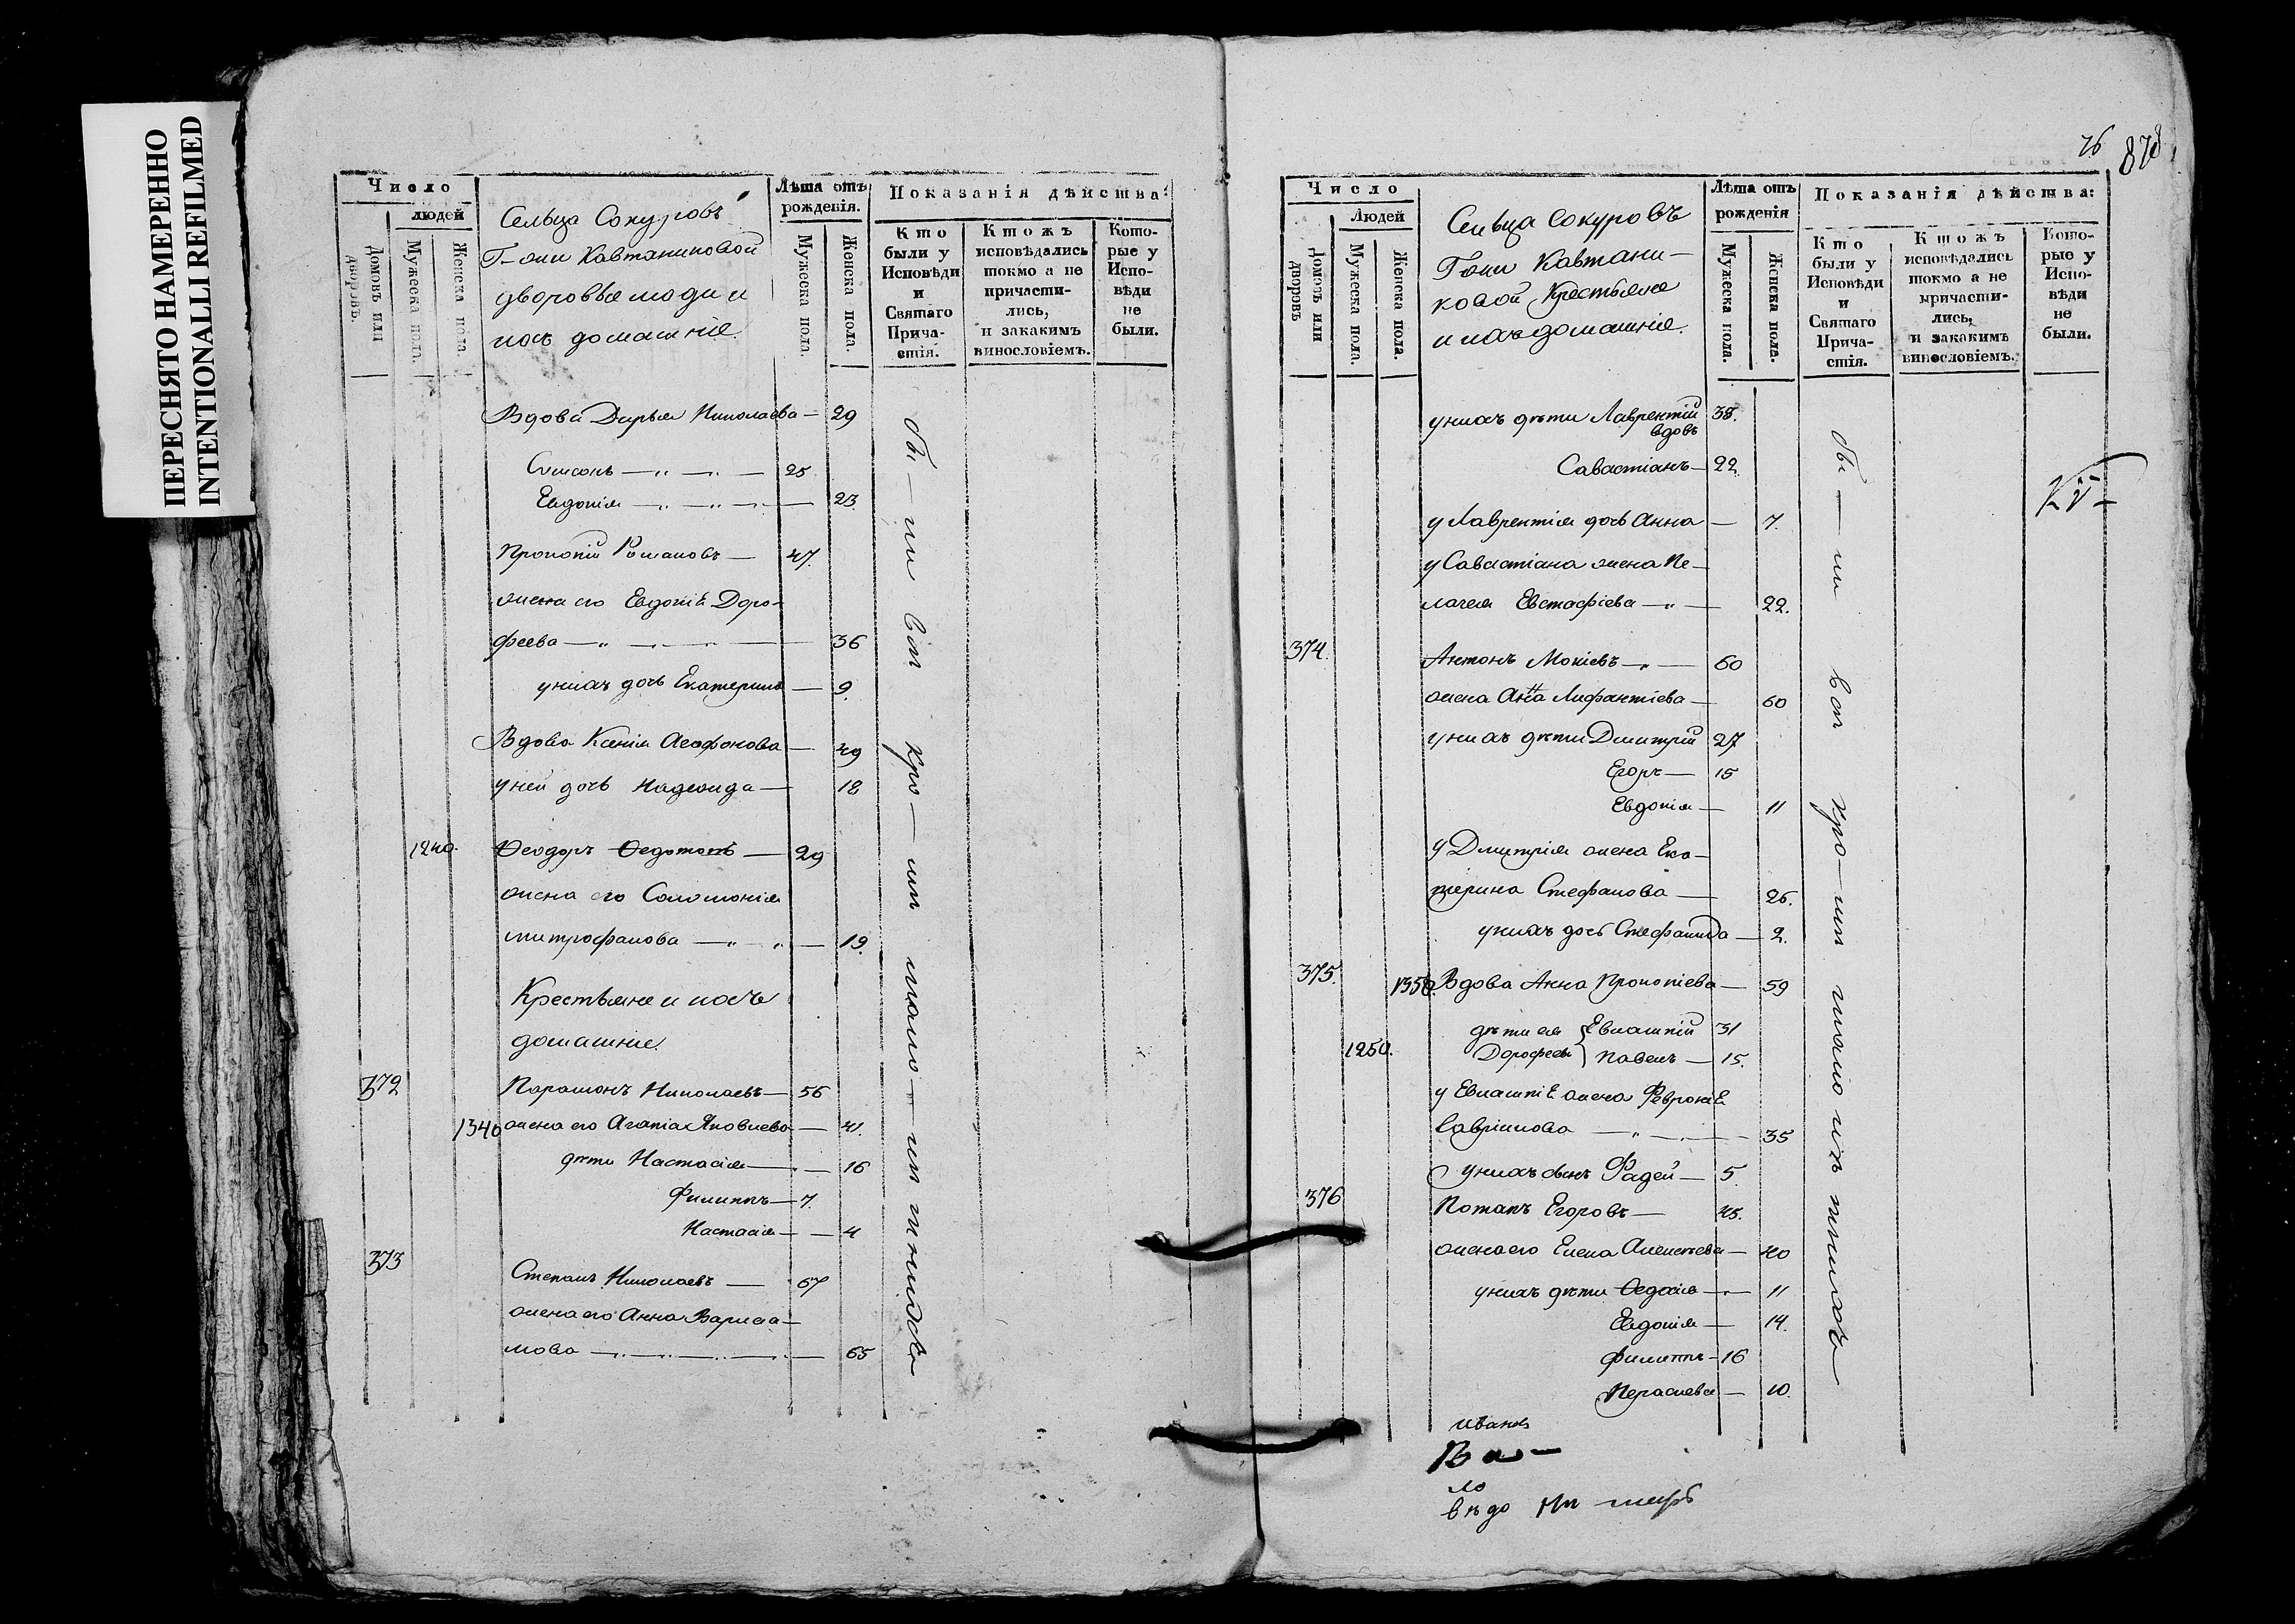 ПЕРЕСНЯТО НАМЕРЕННО
INTENTIONALLI REFILMED
Число
людей
Домовъ или дворовъ.
Мужеска пола.
Женска пола.
Сельца Сокуровъ
Г-жи Кавтаниковой
дворовые люди и
ихъ домашніе.
Лѣта отъ рожденія.
Мужеска пола.
Женска пола.
Показанія дѣйства:
Кто были у Исповѣди и Святаго Прича-стія.
Ктожъ исповѣдались токмо а не причасти-лись, и закакимъ винословіемъ.
Кото-рые у Испо-вѣди не были.
Вдова Дарья Николаева — 29
Симеонъ — 25
Евдокія — 23
Прокопій Романовъ — 47.
жена его Евдокія Доро-
феева — 36
у нихъ дочь Екатерина — 9.
Вдова Ксенія Агафонова — 49
у ней дочь Надежида — 18
1240. Ѳеодоръ Ѳедотовъ — 29
жена его Соломонія
митрофанова — 19.
Крестьяне и ихъ
домашніе.
372 Парамонъ Николаевъ — 56
1340 жена его Агапія Яковлева — 41.
дѣти Настасія — 16
Филиппъ — 7.
Настасія — 4
373 Степанъ Николаевъ — 67
жена его Анна Варлаа-
мова — 65
бы — ли
76
878
Число
Людей
Домовъ или дворовъ
Мужеска пола.
Женска пола.
Сельца Сокуровъ
Г-жи Кавтани-
ковой Крестьяне
и ихъ домашніе.
Лѣта отъ рожденія
Мужеска пола.
Женска пола.
Показанія дѣйства:
Кто были у Исповѣди и Святаго Прича-стія.
Ктожъ исповѣдались токмо а не причасти-лись, и закакимъ винословіемъ.
Кото-рые у Испо-вѣди не были.
у нихъ дѣти Лаврентій 38.
вдовъ
Савастіанъ — 22.
у Лаврентія дочь Анна — 7.
у Савастіана жена Пе-
лагея Евстафіева — 22.
374. Антонъ Мокіевъ — 60
жена Анна Лифантіева — 60
у нихъ дѣти Дмитрій 27
Егоръ — 15
Евдокія — 11
у Дмитрія жена Ека-
терина Стефанова — 26.
у нихъ дочь Стефанида — 2.
375. 1350. Вдова Анна Прокопіева — 59
дѣти ея Евлампій 31
1250. Дорофеевы Павелъ — 15.
у Евлампія жена Февронія
Гавріилова — 35
у нихъ сынъ Фадей — 5.
376 Потапъ Егоровъ — 45.
жена его Елена Алексѣева — 40
у нихъ дѣти Ѳедосія — 11
Евдокія — 14.
филиппъ — 16
Перасиева — 10.
бы — ли
иванъ